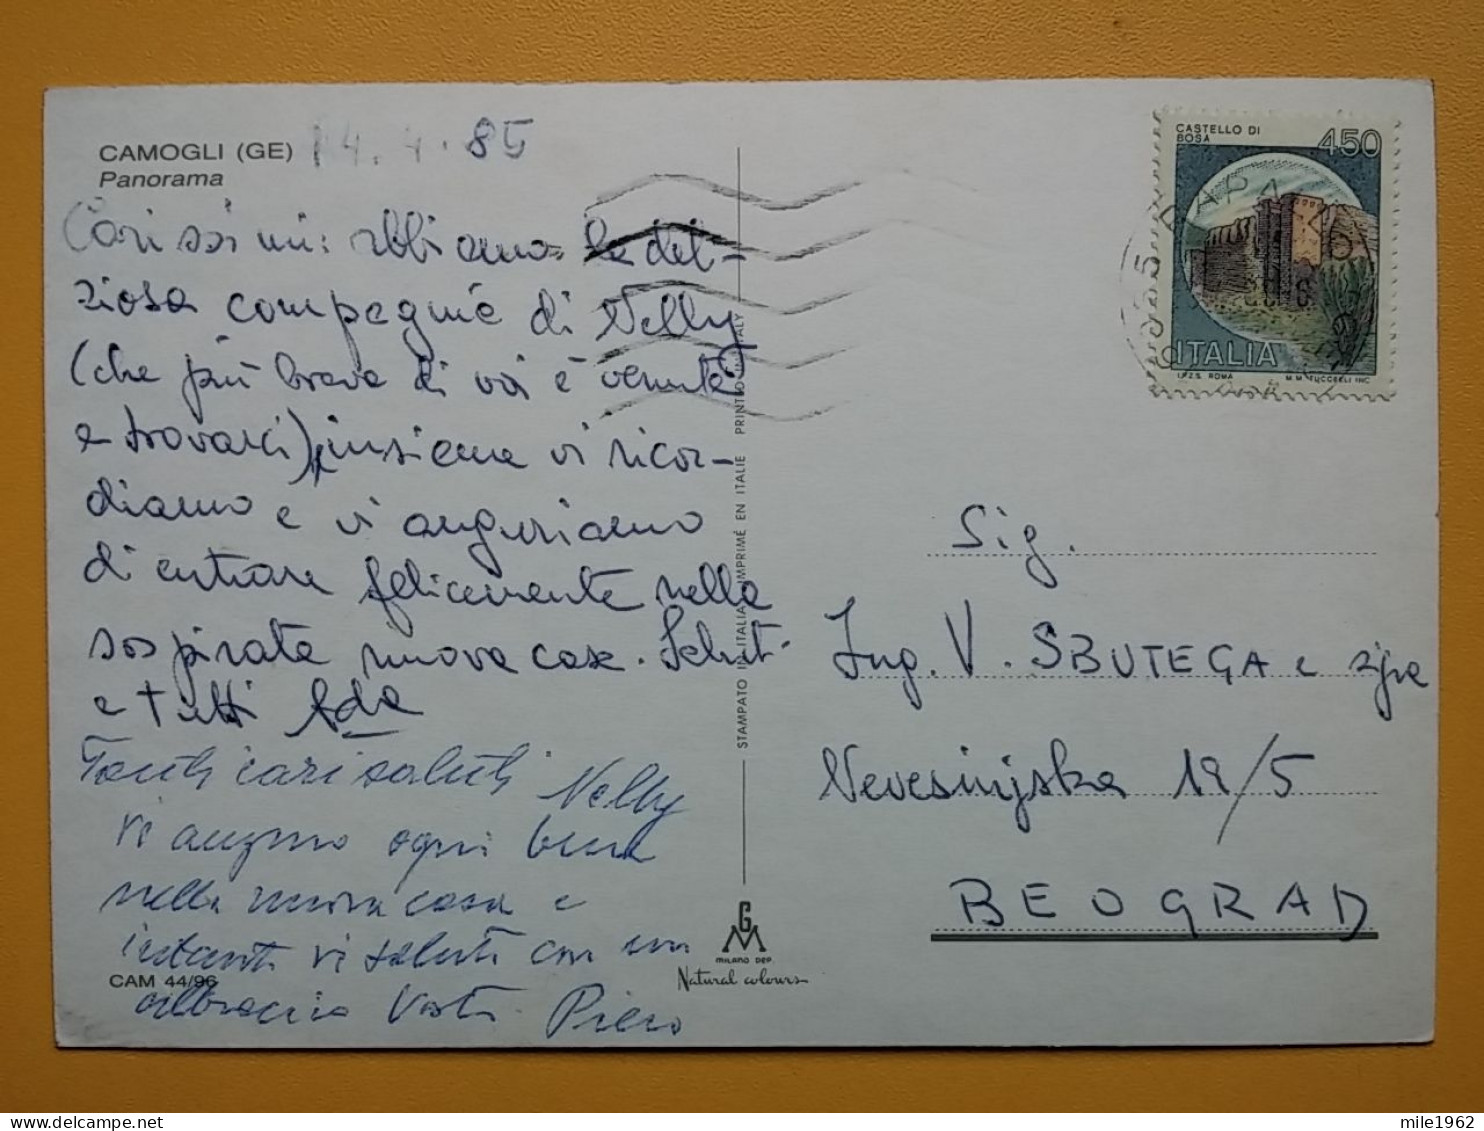 CAMOGLI (GE) 14.4.85
Panorama
Carissimi: abbiamo la del-
ziosa compagnia di Nelly
(che più brava di voi è venuta
a trovarci), insieme vi ricor-
diamo e vi auguriamo
di entrare felicemente nella
sospirata nuova casa. Saluti
a tutti Ada
Tanti cari saluti Nelly
Vi auguro ogni bene
nella nuova casa e
intanti vi saluto con un
abbraccio Vostro Piero
CAM 44/96
STAMPATO IN ITALIA IMPRIMÉ EN ITALIE PRINTED IN ITALY
MILANO DEP.
Natural colours
CASTELLO DI
BOSA
450
ITALIA
I.P.Z.S. ROMA M.M. TUCCELLI INC.
Sig.
Ing. V. SBUTEGA e sig.ra
Nevesinjska 19/5
BEOGRAD
mile1962